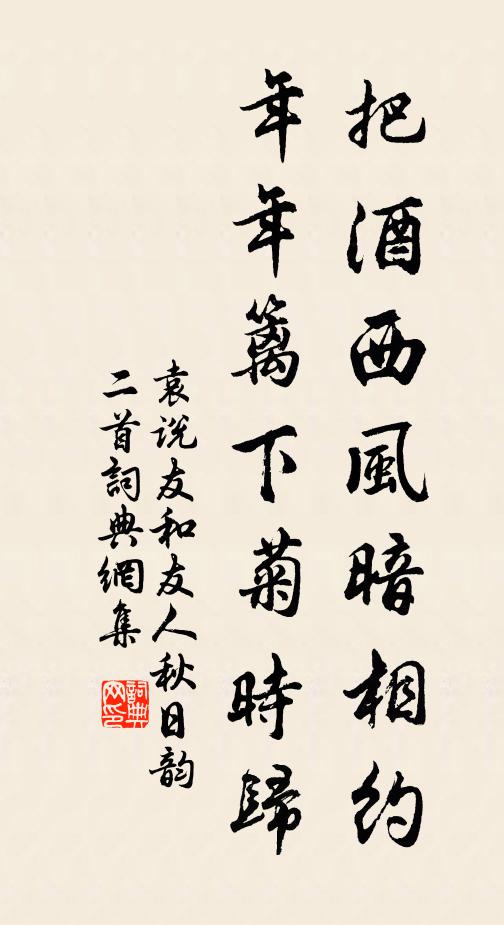 把酒西風暗相約
年年籬下菊時歸
袁説友和友人秋日韵
二首詞典網集
詞典
网印